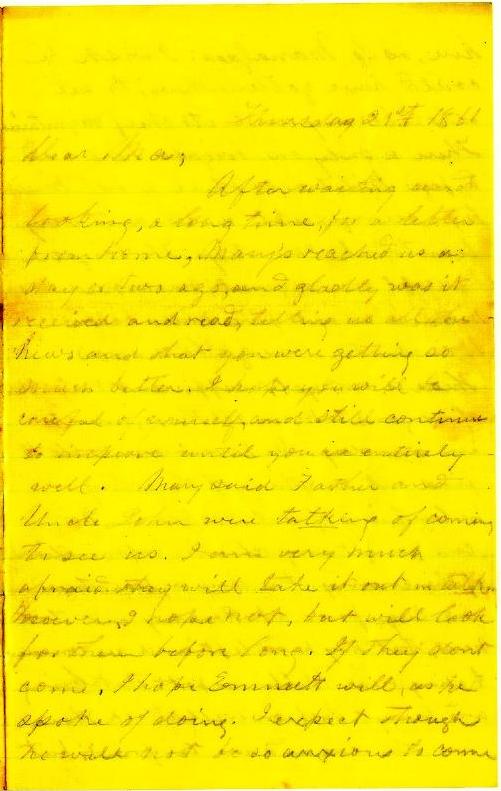 Thursday 21st 186
Dear Ma,
After waiting and
looking, a long time, for a letter
from home, Mary's reached us a
day or two ago, and gladly was it
received and read, telling us all
news and that you were getting so
much better. I hope you will be
careful of yourself, and still continue
to improve until you're entirely
well. Mary said Father and
Uncle John were talking of coming
to see us. I am very much
afraid they will take it out in talk
However, I hope not, but will look
for them before long. If they dont
come, I hope Emmett will, as he
spoke of doing. I expect though
he will not be so anxious to come